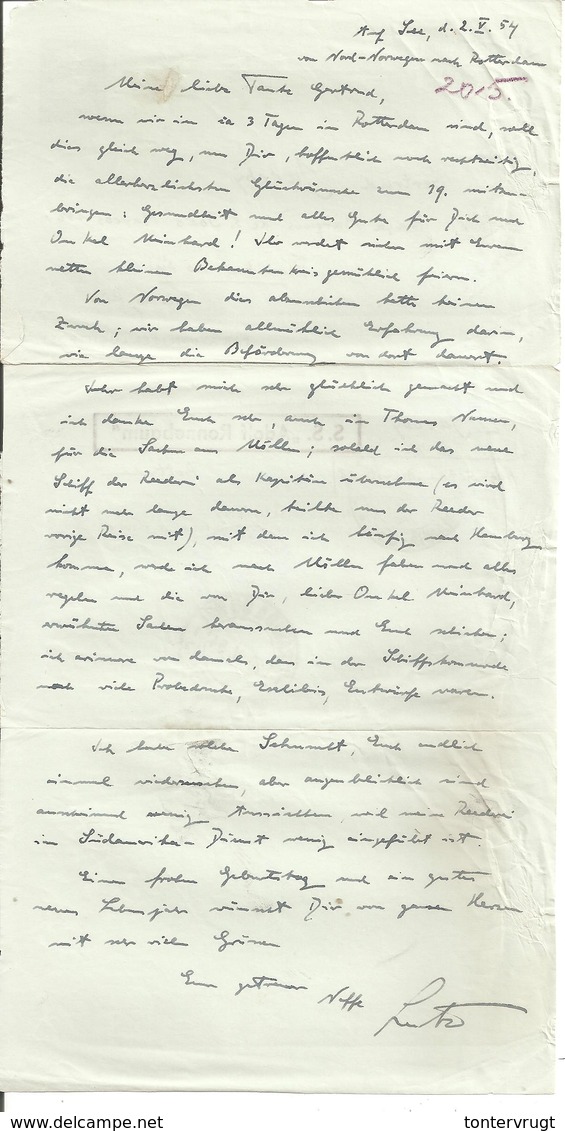 Auf See, d. 2. V. 54
von Nord-Norwegen nach Rotterdam
205.
Meine liebe Tante Gertrud,
wenn wir in ca 3 Tagen in Rotterdam sind, soll
dies gleich weg, um Dir, hoffentlich noch rechtzeitig,
die allerherzlichsten Glückwünsche zum 19. mitzu-
bringen: Gesundheit und alles Gute für Dich und
Onkel Meinhard! Ihr werdet sicher mit Eurem
netten kleinen Bekanntenkreis gemütlich feiern.
Von Norwegen dies abzuschicken hatte keinen
Zweck; wir haben allmählich Erfahrung darin,
wie lange die Beförderung von dort dauert.
Ihr habt mich sehr glücklich gemacht und
ich danke Euch sehr, auch in Thomas Namen,
für die Sachen aus Mölln; sobald ich das neue
Schiff der Reederei als Kapitän übernehme (es wird
nicht mehr lange dauern, teilte mir der Reeder
vorige Reise mit), mit dem ich häufig nach Hamburg
komme, werde ich nach Mölln fahren und alles
regeln und die von Dir, lieber Onkel Meinhard,
erwähnten Sachen heraussuchen und Euch schicken;
ich erinnere von damals, dass in der Schiffskommode
noch viele Probedrucke, Exlibris, Entwürfe waren.
Ich habe solche Sehnsucht, Euch endlich
einmal wiederzusehen, aber augenblicklich sind
anscheinend wenig Aussichten, weil meine Reederei
im Südamerika-Dienst wenig eingeführt ist.
Einen frohen Geburtstag und ein gutes
neues Lebensjahr wünscht Dir von ganzem Herzen
mit sehr vielen Grüssen
Euer getreuer
Neffe
delcampe.net
tontervrugt